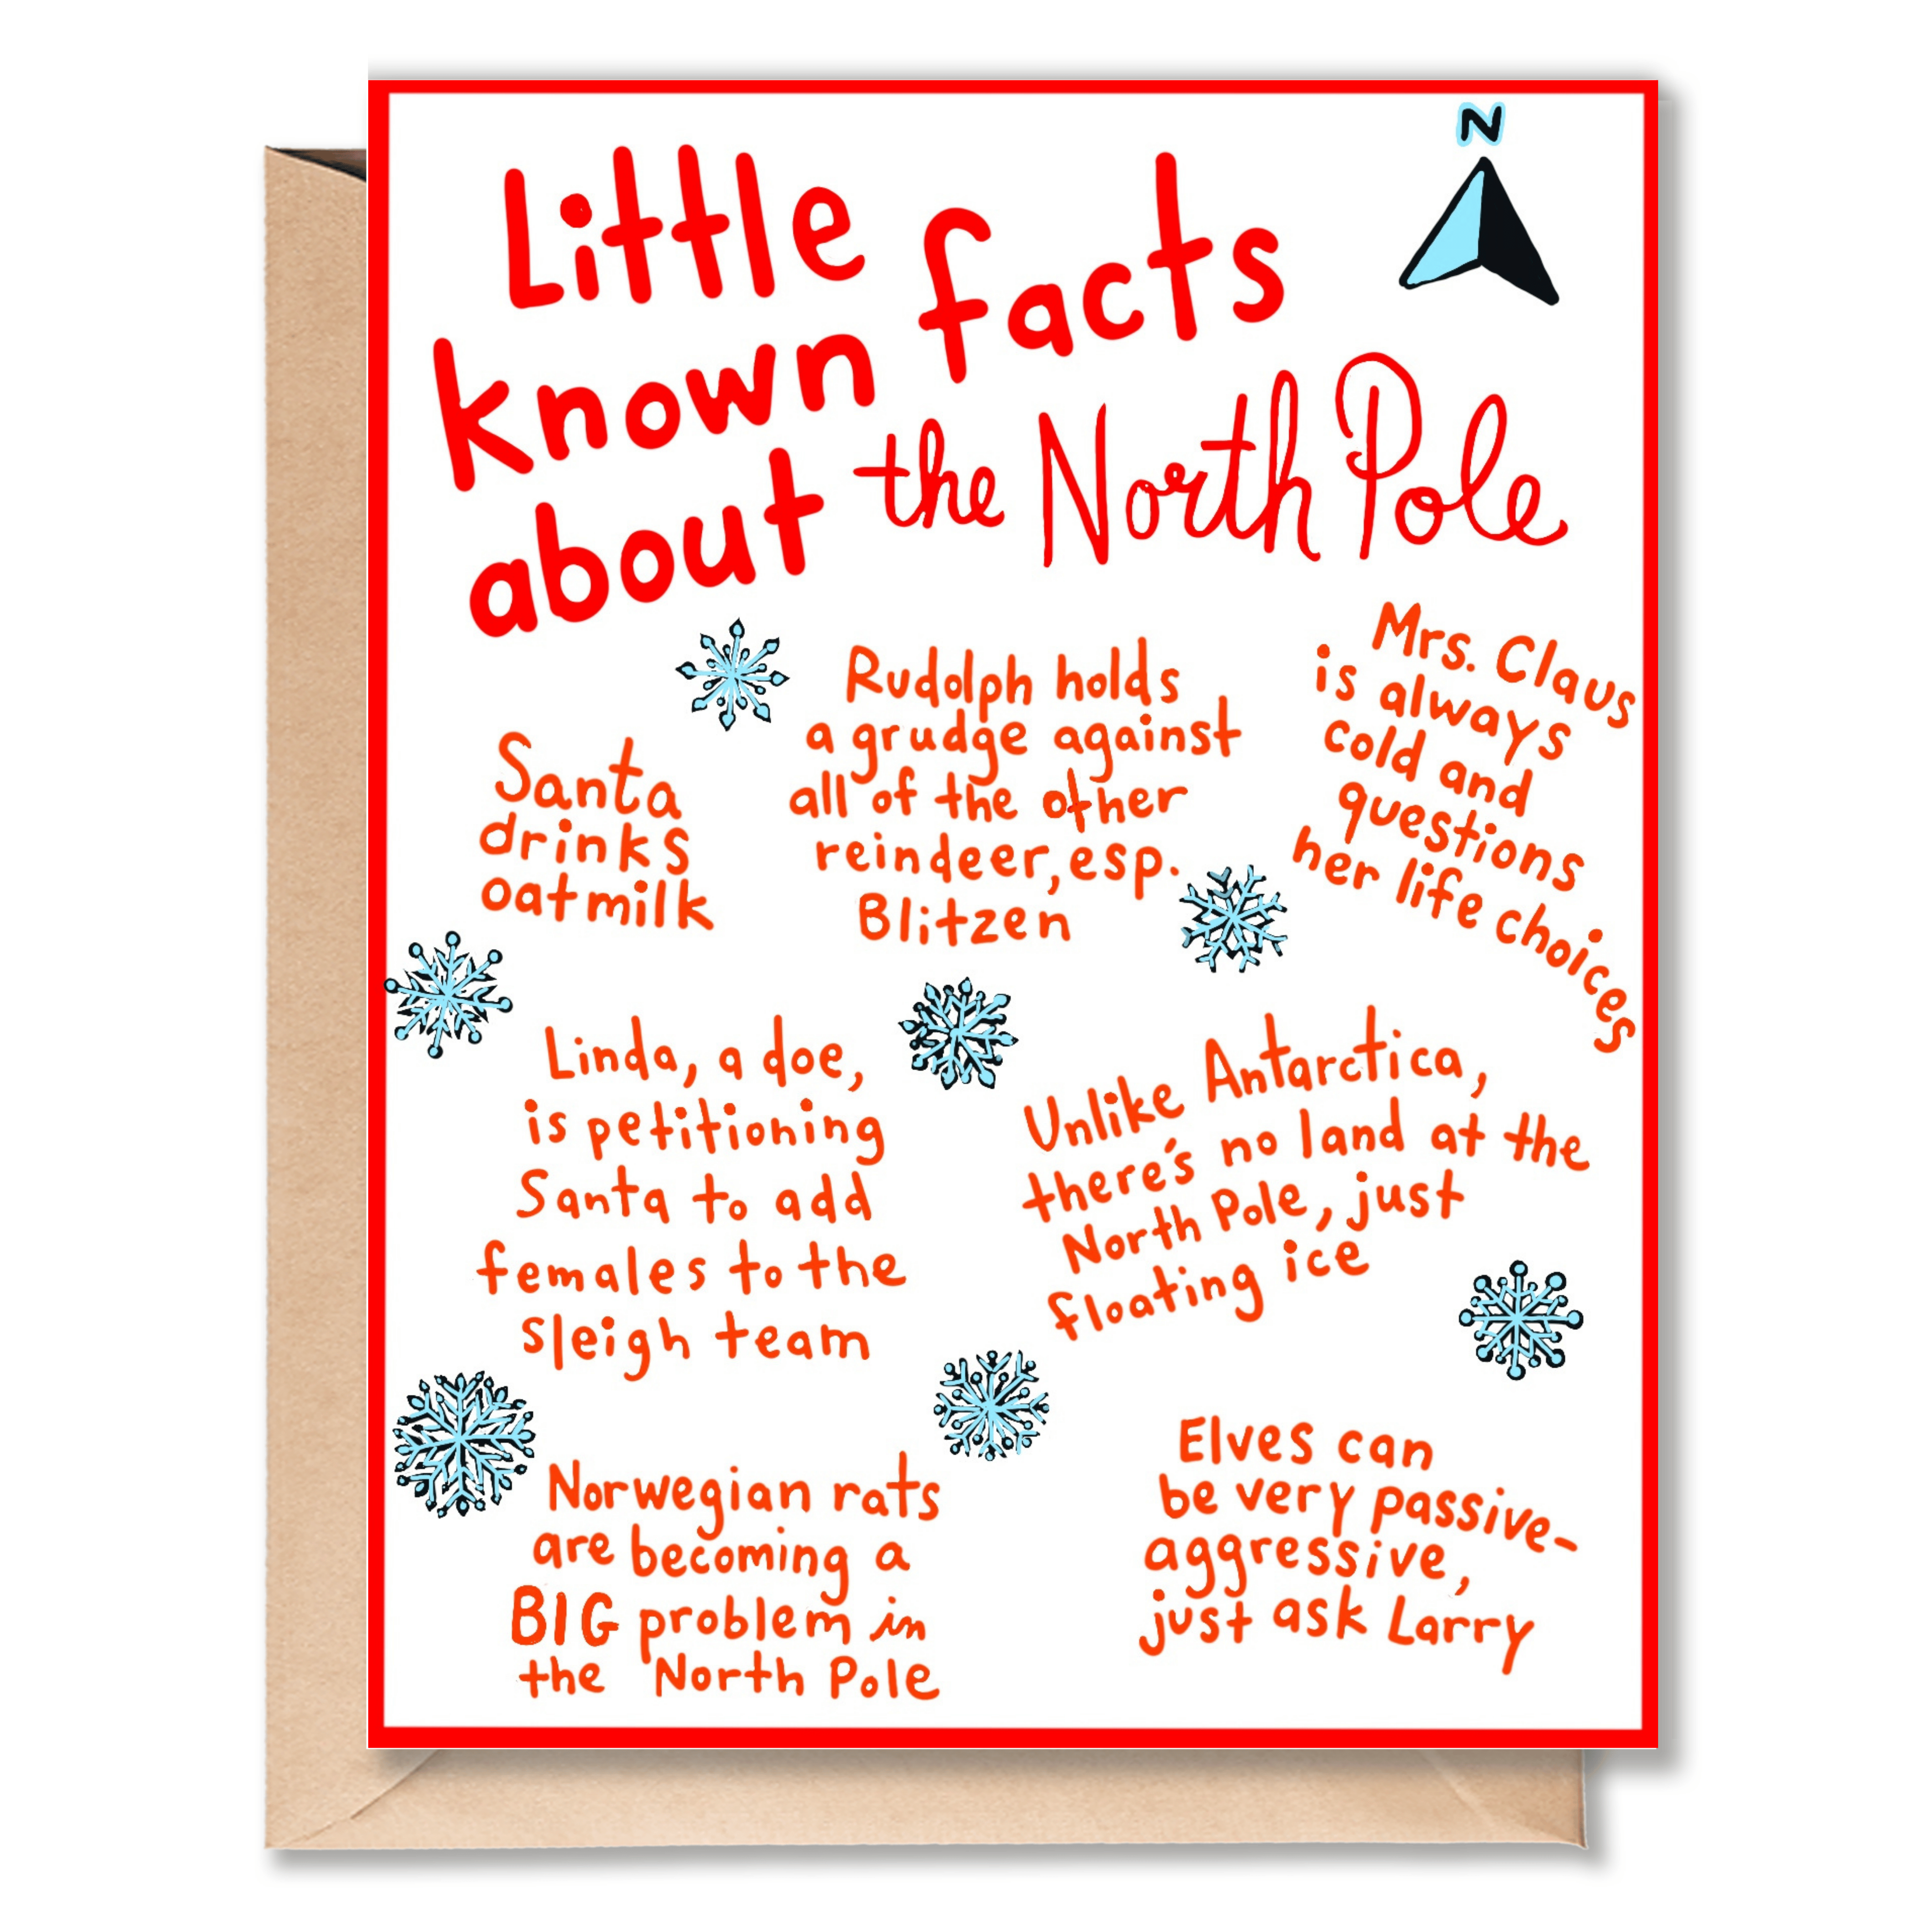 N
Little
known facts
about the North Pole
Santa
drinks
oatmilk
Rudolph holds
a grudge against
all of the other
reindeer, esp.
Blitzen
Mrs. Claus
is always
cold and
questions
her life choices
Linda, a doe,
is petitioning
Santa to add
females to the
sleigh team
Unlike Antarctica,
there's no land at the
North Pole, just
floating ice
Norwegian rats
are becoming a
BIG problem in
the North Pole
Elves can
be very passive-
aggressive,
just ask Larry